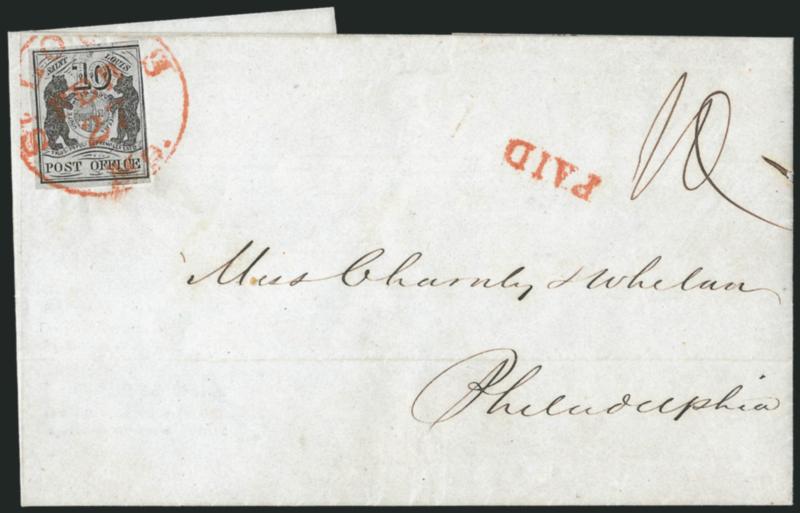 SAINT LOUIS
10
POST OFFICE
PAID
10
Mess Charnley & Whelan
Philadelphia